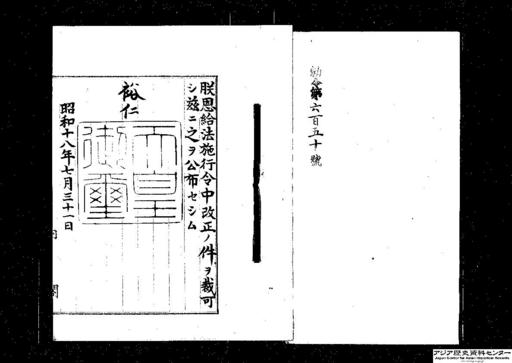 勅令第六百五十號
朕恩給法施行令中改正ノ件ヲ裁可
シ茲ニ之ヲ公布セシム
裕仁
天皇
御璽
昭和十八年七月三十一日
内閣
アジア歴史資料センター
Japan Center for Asian Historical Records